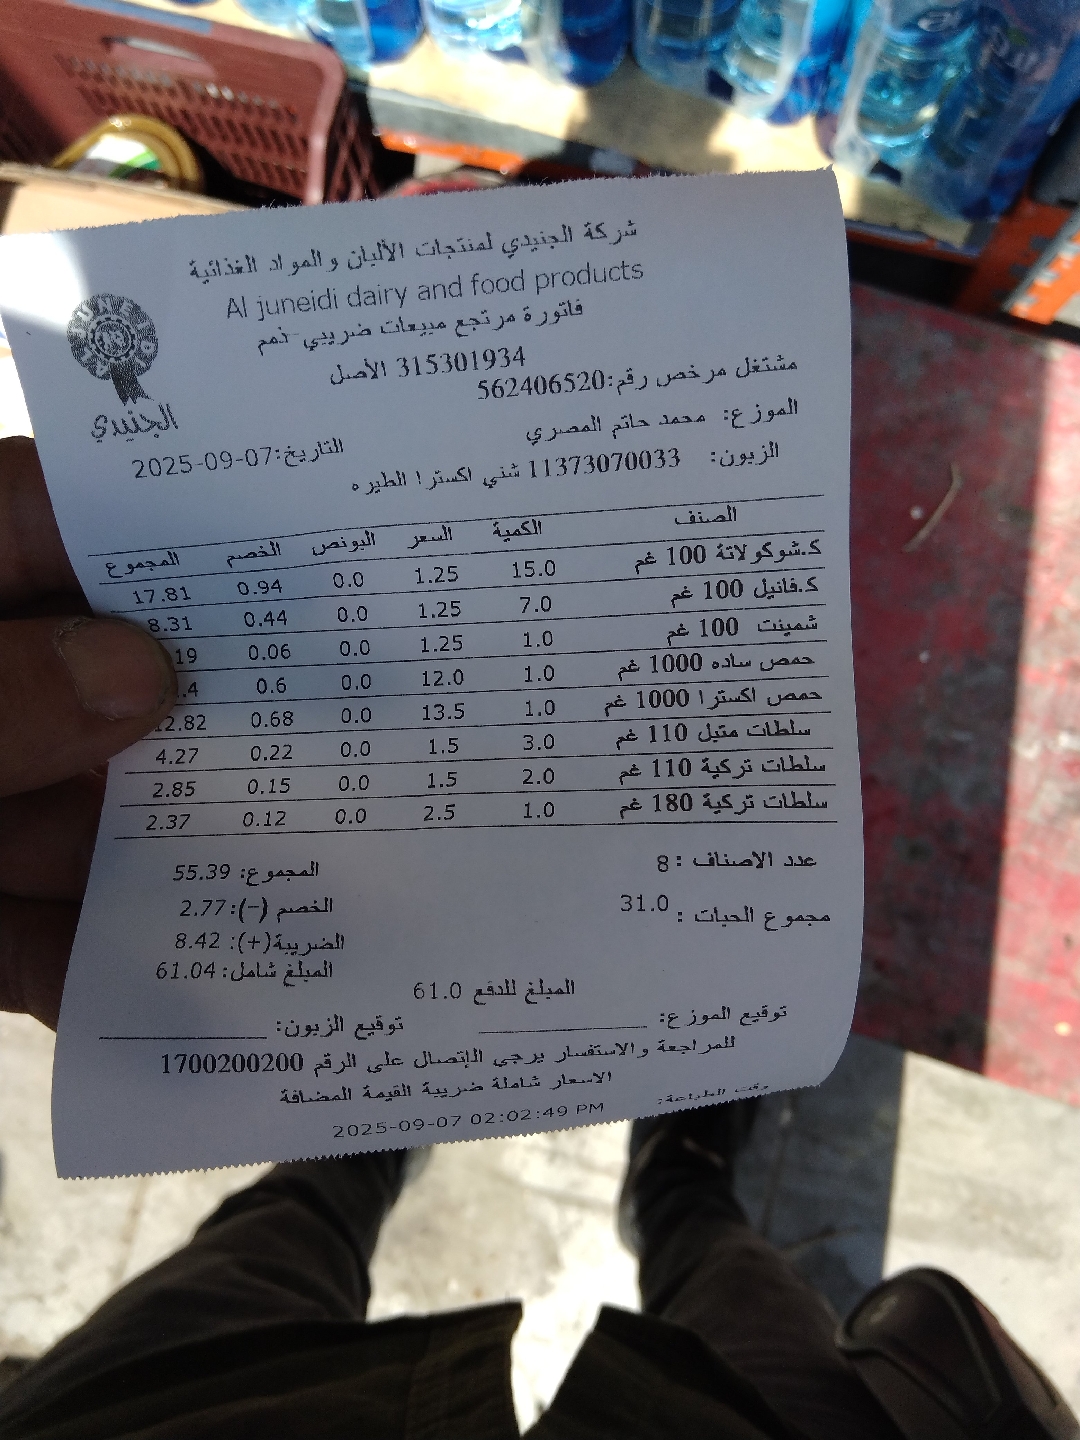 شركة الجنيدي لمنتجات الألبان والمواد الغذائية
Al juneidi dairy and food products
فاتورة مرتجع مبيعات ضريبي-ذمم
315301934 الأصل
مشتغل مرخص رقم:562406520
الجنيدي
الموزع: محمد حاتم المصري
التاريخ:2025-09-07
الزبون: 11373070033 شني اكسترا الطيره
الصنف الكمية السعر البونص الخصم المجموع
ك.شوكولاتة 100 غم 15.0 1.25 0.0 0.94 17.81
ك.فانيل 100 غم 7.0 1.25 0.0 0.44 8.31
شمينت 100 غم 1.0 1.25 0.0 0.06 19
حمص ساده 1000 غم 1.0 12.0 0.0 0.6 .4
حمص اكسترا 1000 غم 1.0 13.5 0.0 0.68 12.82
سلطات متبل 110 غم 3.0 1.5 0.0 0.22 4.27
سلطات تركية 110 غم 2.0 1.5 0.0 0.15 2.85
سلطات تركية 180 غم 1.0 2.5 0.0 0.12 2.37
عدد الاصناف : 8 المجموع: 55.39
مجموع الحبات : 31.0 الخصم (-):2.77
الضريبة(+): 8.42
المبلغ شامل: 61.04
المبلغ للدفع 61.0
توقيع الموزع: توقيع الزبون:
للمراجعة والاستفسار يرجى الإتصال على الرقم 1700200200
الاسعار شاملة ضريبة القيمة المضافة
وقت الطباعة: 2025-09-07 02:02:49 PM